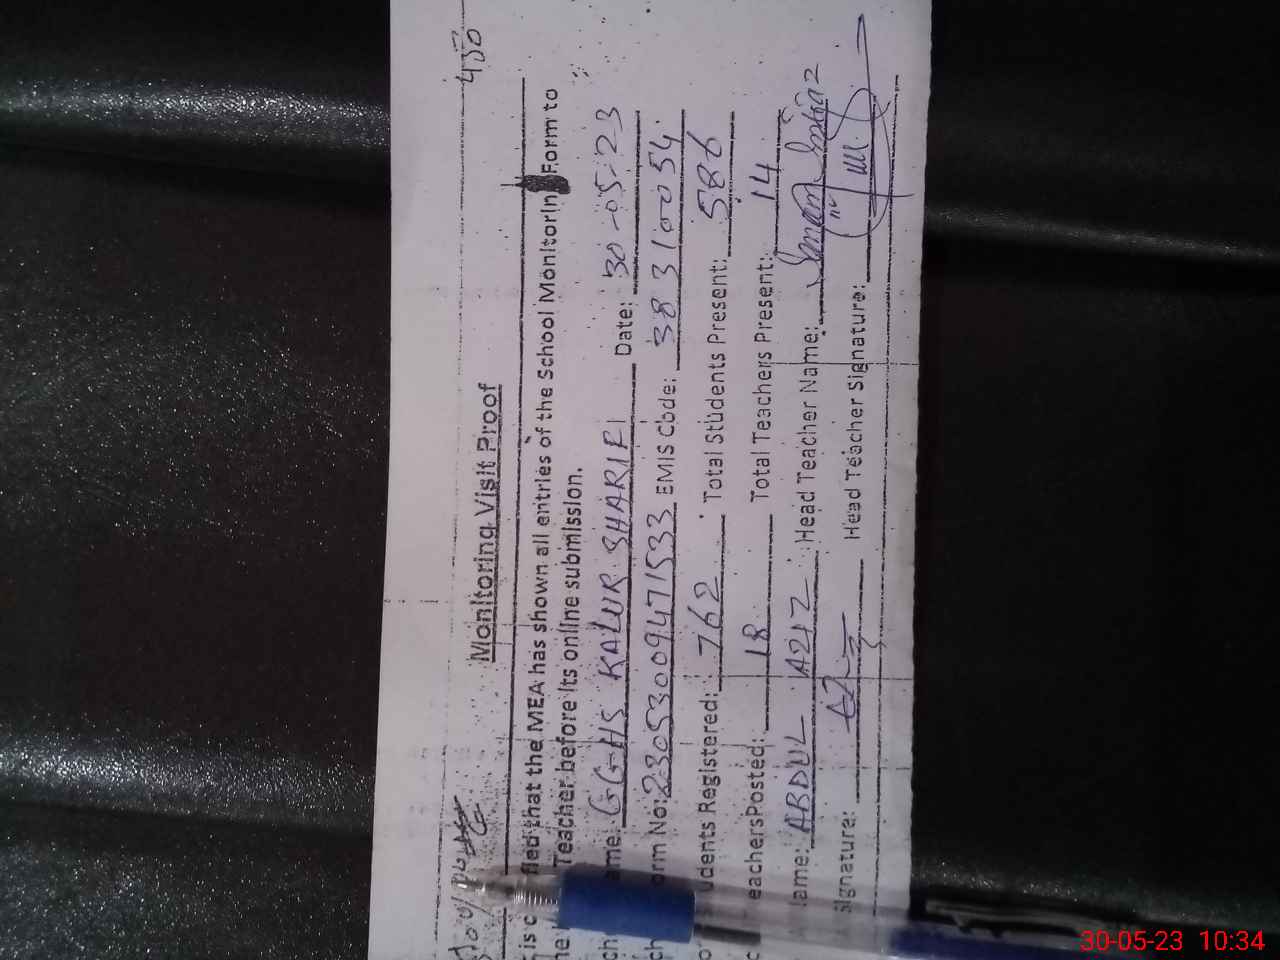 450
Monitoring Visit Proof
fied that the MEA has shown all entries of the School Monitorin Form to
Teacher before its online submission.
ame: GGHS KALUR SHARIF Date: 30-05-23
orm No: 23053009471533 EMIS Code: 38310054
udents Registered: 762 Total Students Present: 586
eachersPosted: 18 Total Teachers Present: 14
ame: ABDUL AZIZ Head Teacher Name:
signature: Head Teacher Signature:
30-05-23 10:34